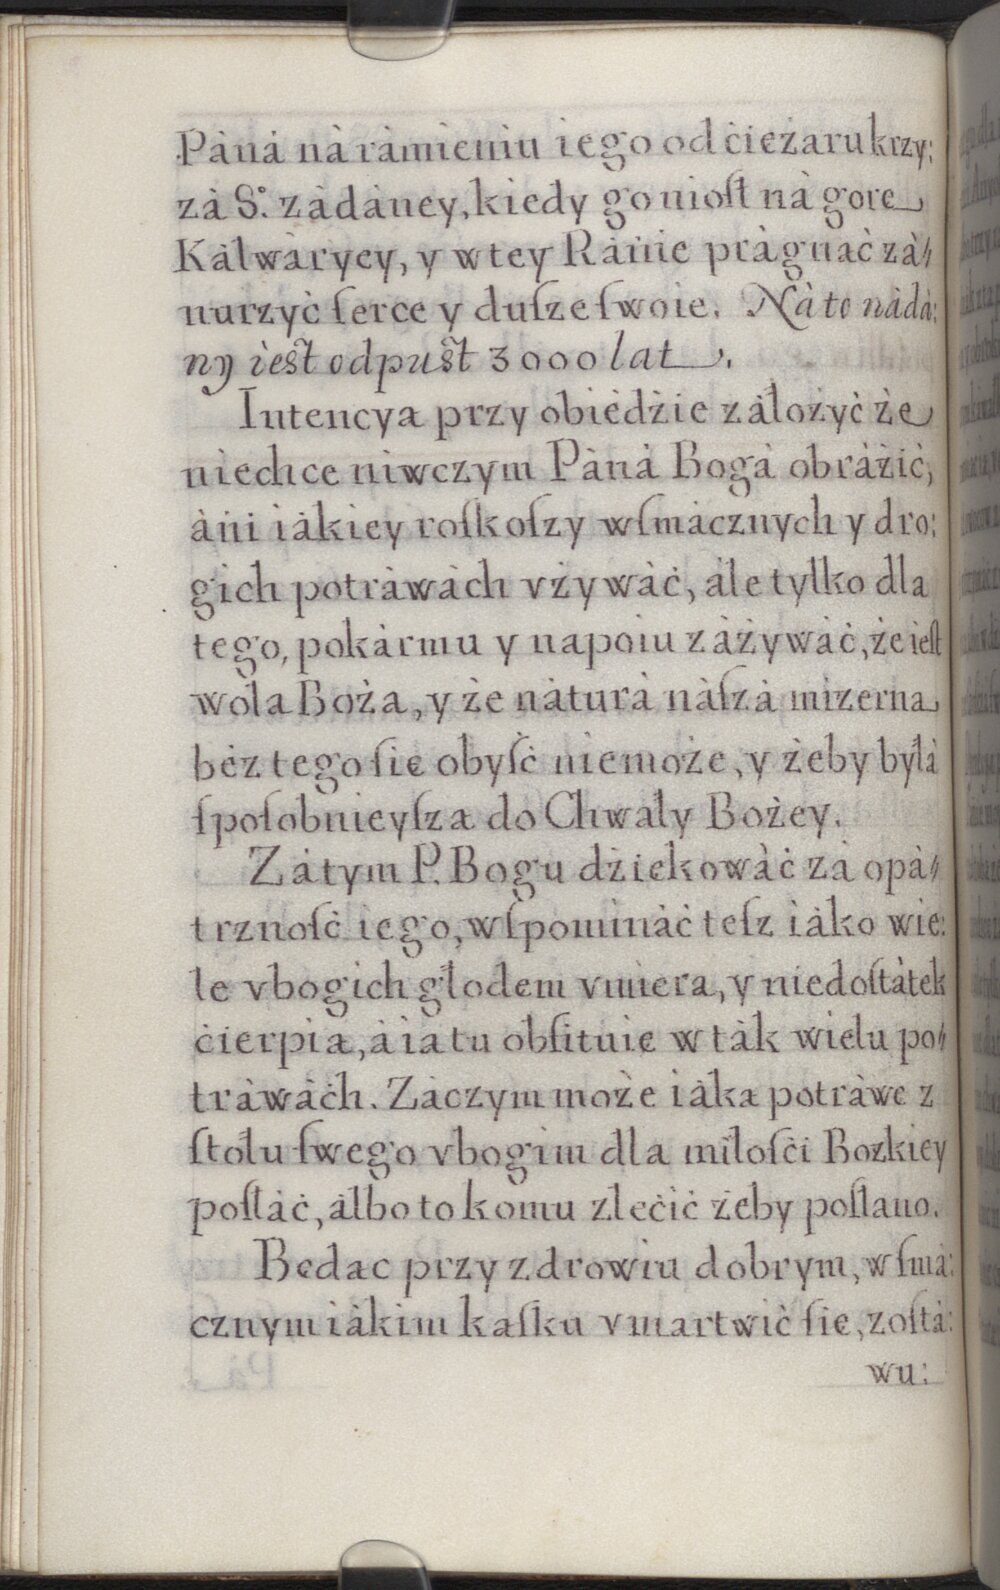 Páná ná rámieniu iego od ćieżaru krzy:
zá S°. zádáney, kiedy go niosł ná gore
Kálwáryey, y w tey Ránie prágnąć zá⸗
nurzyć ſerce y duſze ſwoie. Ná to nádá:
ny ieſt odpuſt 3000 lat.
Intencya przy obiedźie záłożyć że
niechce niwczym Páná Bogá obráźić,
áni iákiey roſkoſzy wſmácznych y dro:
gich potráwách vżywáć, ále tylko dla
tego, pokármu y napoiu záżywáć, że ieſt
wola Boża, y że náturá náſzá mizerna
bez tego ſie obyſć niemoże, y żeby byłá
ſpoſobnieyſza do Chwały Bożey.
Zátym P. Bogu dźiekowáć zá opá⸗
trznoſć iego, wſpomináć teſz iáko wie:
le vbogich głodem vmiera, y niedoſtátek
ćierpia, á ia tu obfituie w ták wielu po⸗
tráwách. Záczym może iáka potráwe z
ſtołu ſwego vbogim dla miłoſći Bozkiey
poſłáć, álbo to komu zlećić żeby poſłano.
Bedac przy zdrowiu dobrym, w ſmá:
cznym iákim kaſku vmartwić ſie, zoſtá:
wu: